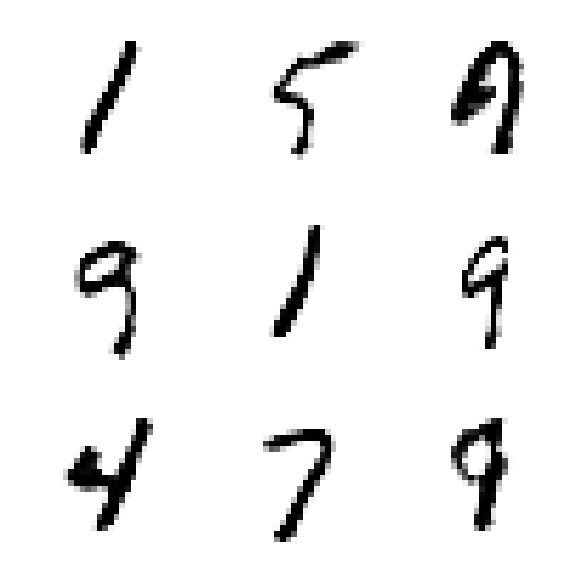 1 5 9
9 1 9
4 7 9